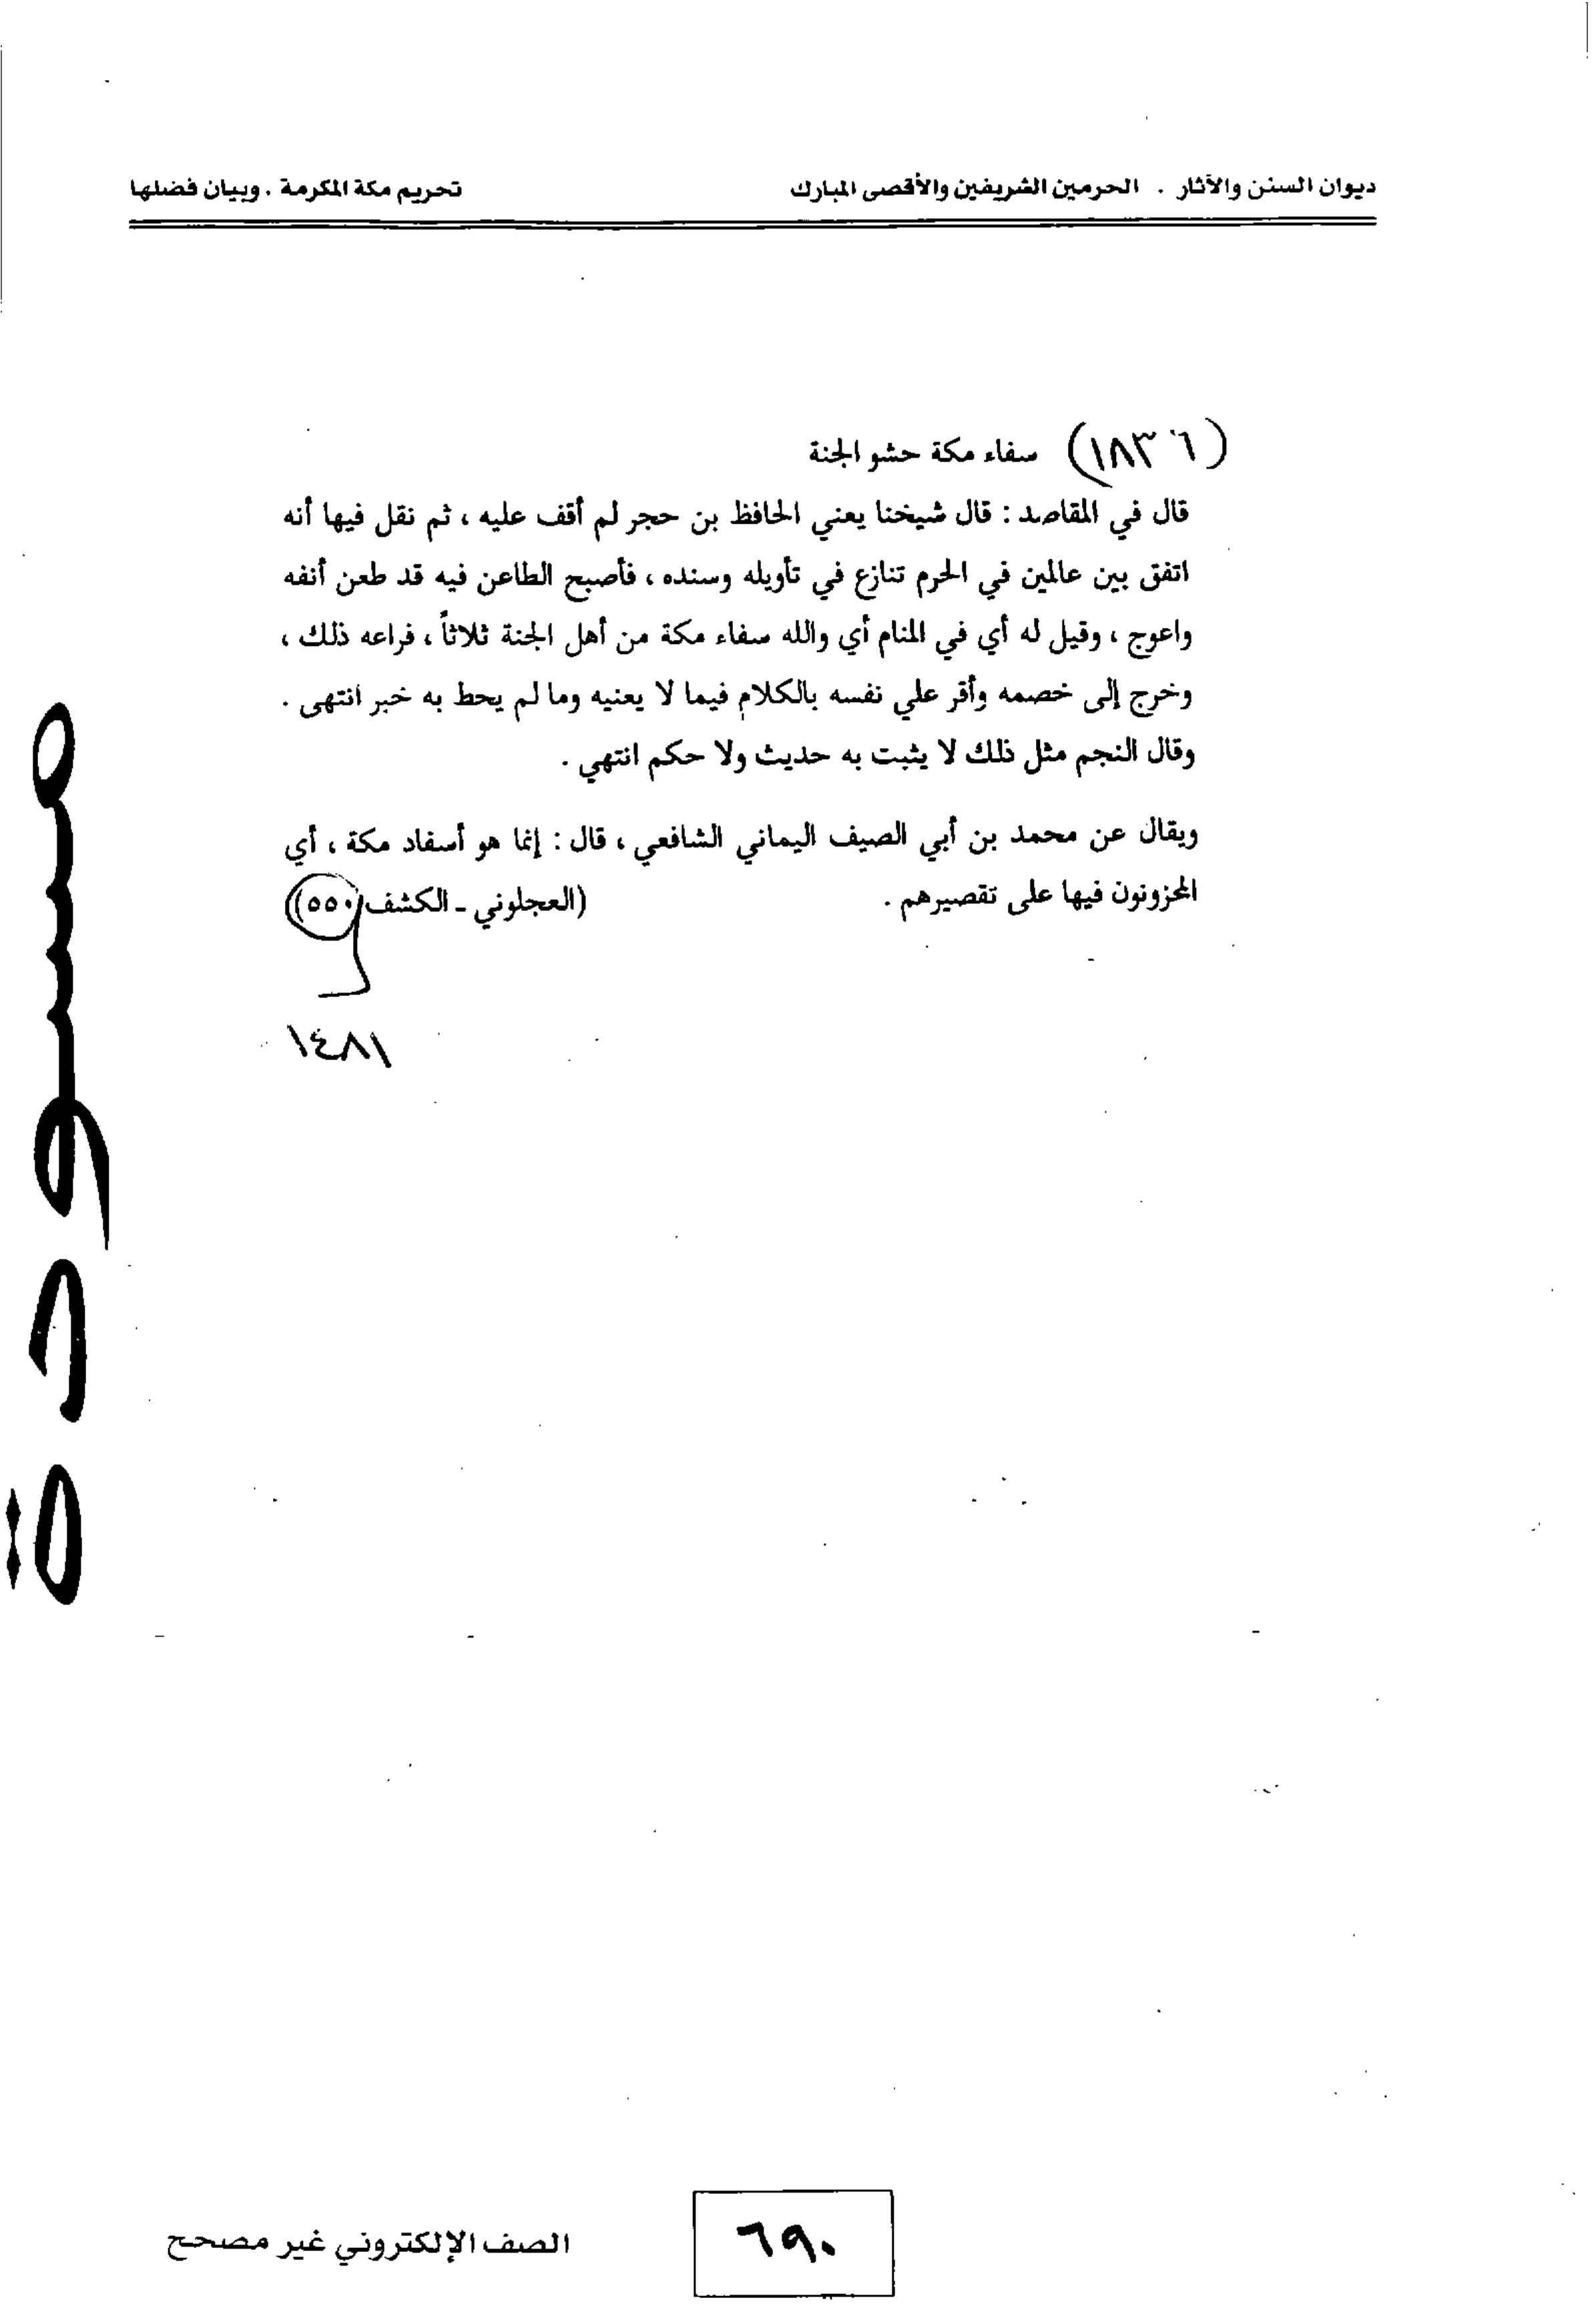 ديوان السنن والآثار . الحرمين الشريفين والأقصى المبارك
تحريم مكة المكرمة . وبيان فضلها
(١٨٣٦) سفاء مكة حشو الجنة
قال في المقاصد : قال شيخنا يعني الحافظ بن حجر لم أقف عليه ، ثم نقل فيها أنه
اتفق بين عالمين في الحرم تنازع في تأويله وسنده ، فأصبح الطاعن فيه قد طعن أنفه
واعوج ، وقيل له أي في المنام أي والله سفاء مكة من أهل الجنة ثلاثاً ، فراعه ذلك ،
وخرج إلى خصمه وأقر علي نفسه بالكلام فيما لا يعنيه وما لم يحط به خبر انتهى .
وقال النجم مثل ذلك لا يثبت به حديث ولا حكم انتهي .
ويقال عن محمد بن أبي الصيف اليماني الشافعي ، قال : إنما هو أسفاد مكة ، أي
المحزونون فيها على تقصيرهم .
(العجلوني - الكشف ٥٥٠)
١٤٨١
مسودة
٦٩٠
الصف الإلكتروني غير مصحح